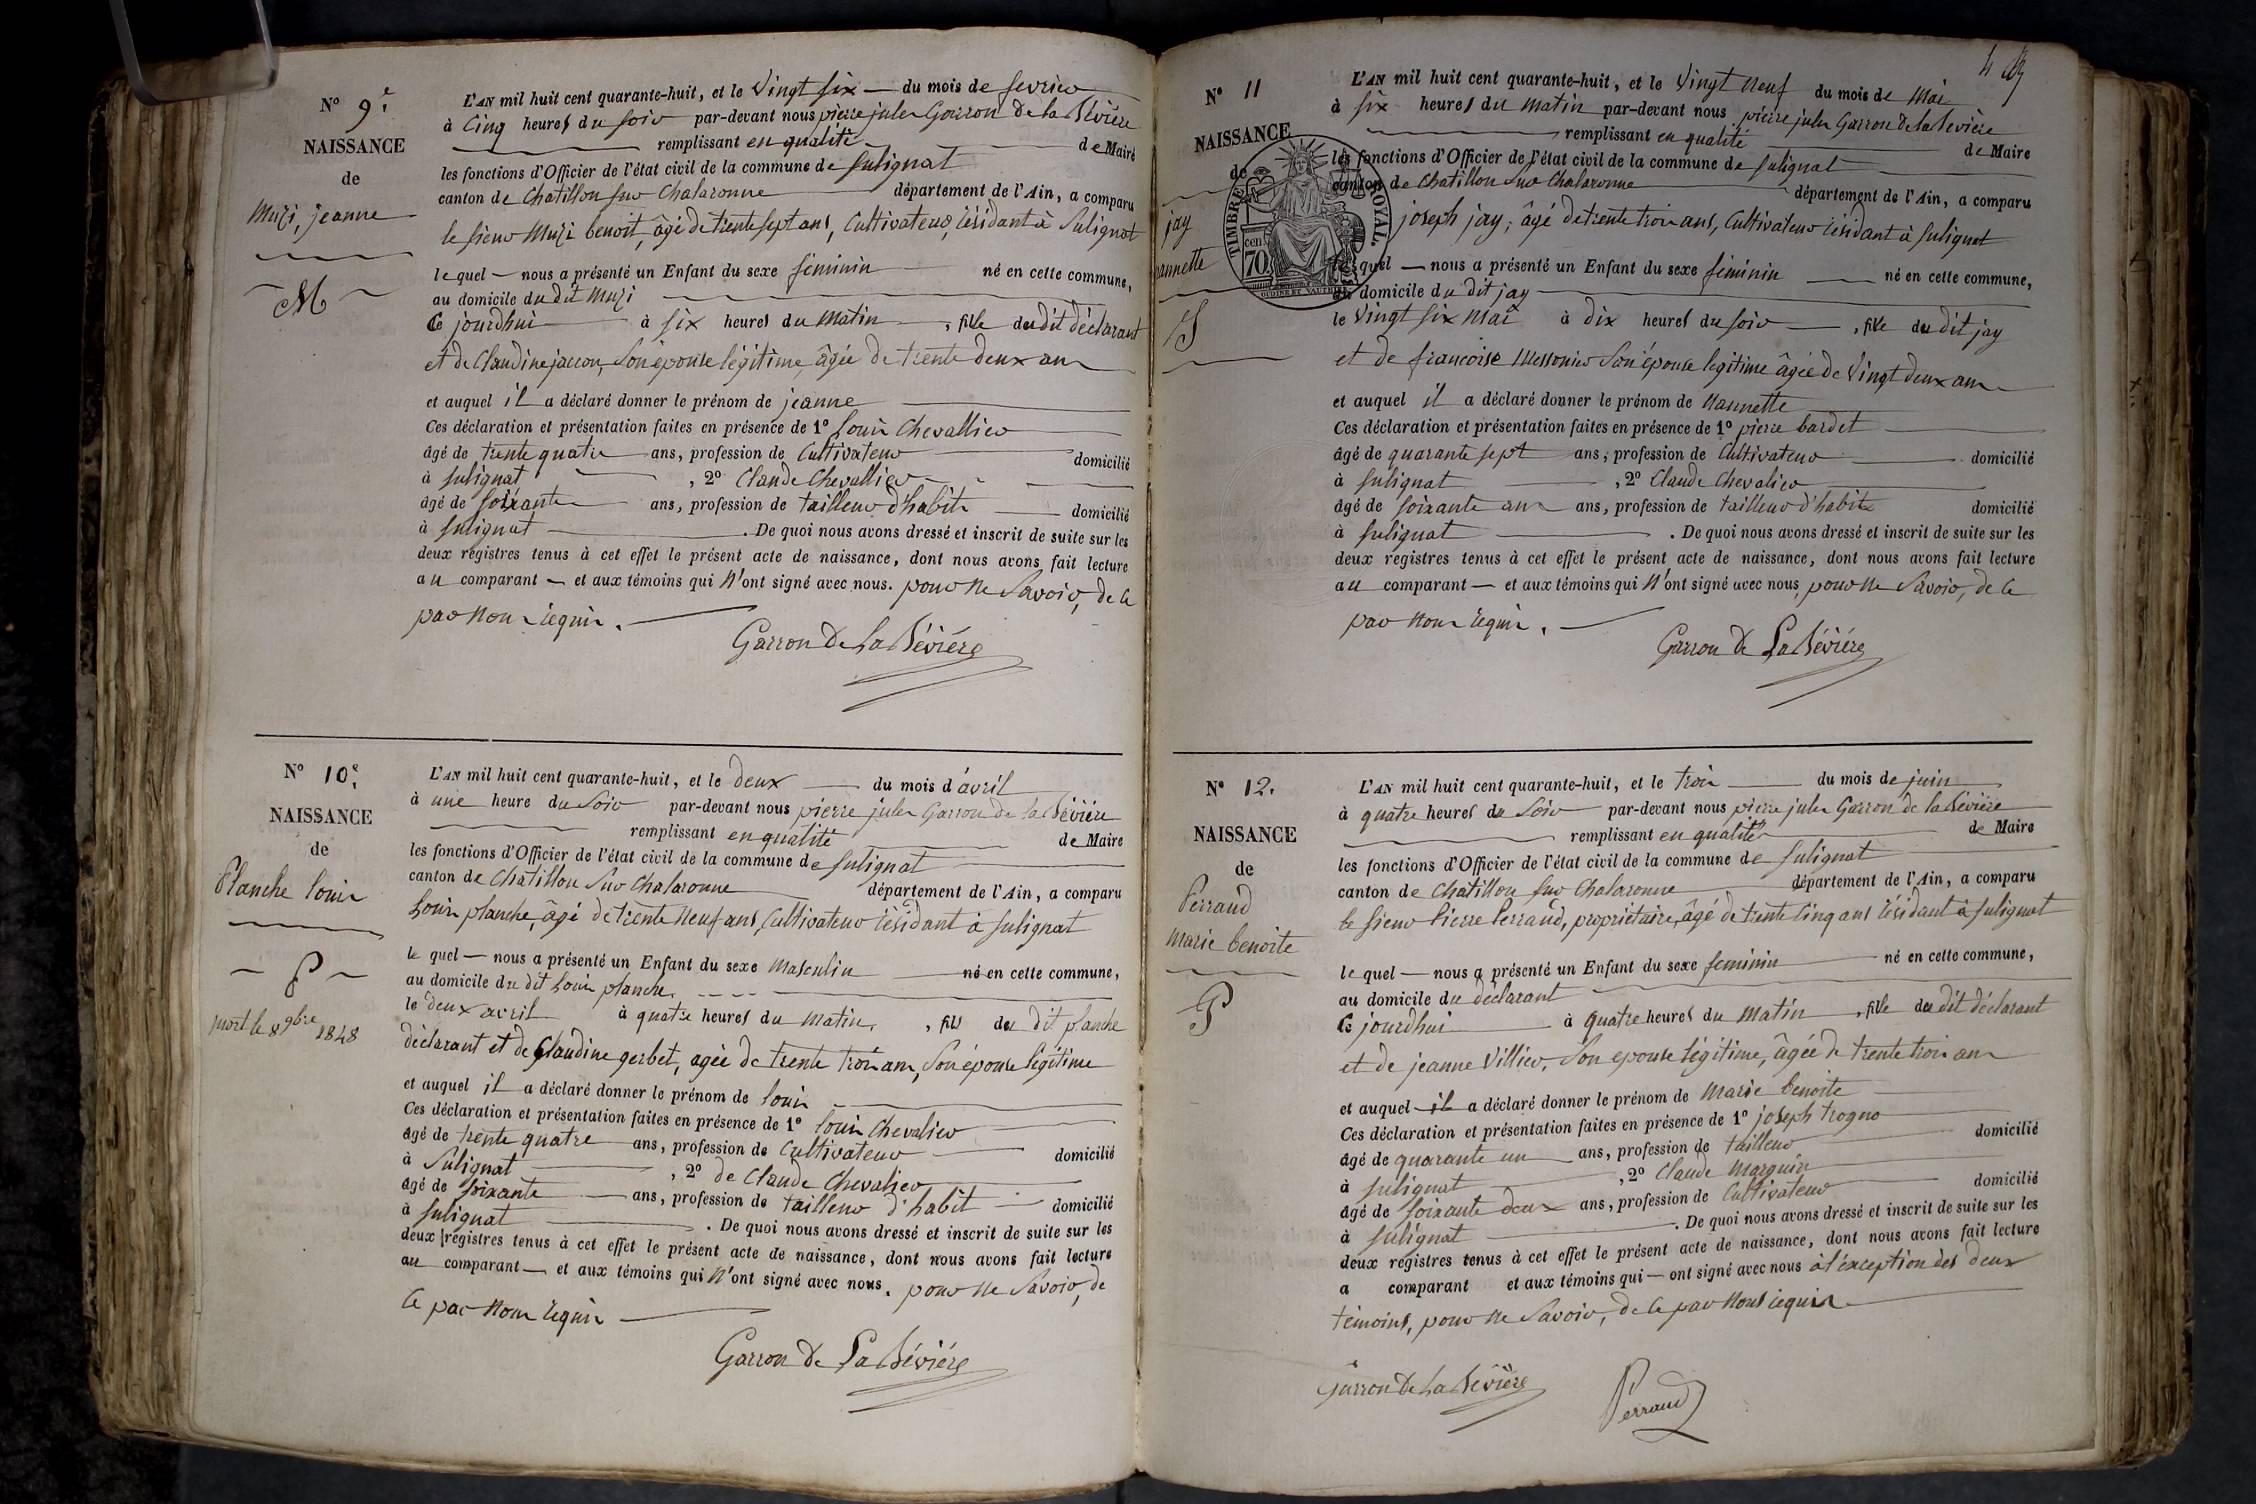 N° 9e.
NAISSANCE
de
Muzi, jeanne
M
L'AN mil huit cent quarante-huit, et le Vingt six — du mois de fevrier
à Cinq heures du soir par-devant nous pierre jules Garron de la Bévière
remplissant en qualité de Maire
les fonctions d'Officier de l'état civil de la commune de Sulignat
canton de Chatillon sur Chalaronne département de l'Ain, a comparu
le sieur Muzi benoit, âgé de trente sept ans, Cultivateur, résidant à Sulignat
le quel — nous a présenté un Enfant du sexe féminin né en cette commune,
au domicile du dit Muzi
Ce jourdhui à six heures du Matin, fille du dit déclarant
et de Claudine jaccon, Son épouse légitime, âgée de trente deux ans
et auquel il a déclaré donner le prénom de jeanne
Ces déclaration et présentation faites en présence de 1° Louis Chevallier
âgé de trente quatre ans, profession de Cultivateur domicilié
à Sulignat, 2° Claude Chevallier
âgé de soixante ans, profession de tailleur d'habits domicilié
à Sulignat. De quoi nous avons dressé et inscrit de suite sur les
deux registres tenus à cet effet le présent acte de naissance, dont nous avons fait lecture
au comparant — et aux témoins qui N'ont signé avec nous. pour ne Savoir, de ce
par nous requis.
Garron de La Béviére
N° 10e.
NAISSANCE
de
Planche louis
P
mort le 8 9bre 1848
L'AN mil huit cent quarante-huit, et le deux du mois d'avril
à une heure du Soir par-devant nous pierre jules Garron de la Bévière
remplissant en qualité de Maire
les fonctions d'Officier de l'état civil de la commune de Sulignat
canton de Chatillon Sur Chalaronne département de l'Ain, a comparu
Louis planche, âgé de trente Neuf ans, Cultivateur résidant à Sulignat
le quel — nous a présenté un Enfant du sexe Masculin né en cette commune,
au domicile du dit Louis planche.
le deux avril à quatre heures du matin, fils du dit planche
déclarant et de Claudine gerbet, agée de trente trois ans, Son épouse légitime
et auquel il a déclaré donner le prénom de louis
Ces déclaration et présentation faites en présence de 1° louis Chevalier
âgé de trente quatre ans, profession de Cultivateur domicilié
à Sulignat, 2° de Claude Chevalier
âgé de soixante ans, profession de tailleur d'habit domicilié
à Sulignat. De quoi nous avons dressé et inscrit de suite sur les
deux registres tenus à cet effet le présent acte de naissance, dont nous avons fait lecture
au comparant — et aux témoins qui N'ont signé avec nous. pour ne Savoir, de
ce par nous requis
Garron de La Béviére
N° 11
NAISSANCE
de
jay
nannette
J
TIMBRE ROYAL.
70 cen
L'AN mil huit cent quarante-huit, et le Vingt Neuf du mois de Mai
à six heures du matin par-devant nous pierre jules Garron de la Bévière
remplissant en qualité de Maire
les fonctions d'Officier de l'état civil de la commune de Sulignat
canton de Chatillon Sur Chalaronne département de l'Ain, a comparu
joseph jay, âgé de trente trois ans, Cultivateur résidant à Sulignat
le quel — nous a présenté un Enfant du sexe féminin né en cette commune,
au domicile du dit jay
le Vingt six Mai à dix heures du soir, fille du dit jay
et de francoise Messonier Son épouse legitime âgée de Vingt deux ans
et auquel il a déclaré donner le prénom de Nannette
Ces déclaration et présentation faites en présence de 1° pierre bardet
âgé de quarante sept ans, profession de Cultivateur domicilié
à Sulignat, 2° Claude Chevalier
âgé de soixante ans ans, profession de tailleur d'habits domicilié
à Sulignat. De quoi nous avons dressé et inscrit de suite sur les
deux registres tenus à cet effet le présent acte de naissance, dont nous avons fait lecture
au comparant — et aux témoins qui N'ont signé avec nous pour ne Savoir, de ce
par nous requis.
Garron de La Béviére
N° 12.
NAISSANCE
de
Perraud
Marie benoite
P
L'AN mil huit cent quarante-huit, et le trois du mois de juin
à quatre heures du Soir par-devant nous pierre jules Garron de la Bévière
remplissant en qualité de Maire
les fonctions d'Officier de l'état civil de la commune de Sulignat
canton de Chatillon sur Chalaronne département de l'Ain, a comparu
le sieur Pierre Perraud, propriétaire, âgé de trente Cinq ans résidant à Sulignat
le quel — nous a présenté un Enfant du sexe feminin né en cette commune,
au domicile du déclarant
Ce jourdhui à quatre heures du Matin, fille du dit déclarant
et de jeanne Villier, Son epouse légitime, âgée de trente trois ans
et auquel il a déclaré donner le prénom de Marie benoite
Ces déclaration et présentation faites en présence de 1° joseph trogno
âgé de quarante un ans, profession de tailleur domicilié
à Sulignat, 2° Claude Marguin
âgé de soixante deux ans, profession de Cultivateur domicilié
à Sulignat. De quoi nous avons dressé et inscrit de suite sur les
deux registres tenus à cet effet le présent acte de naissance, dont nous avons fait lecture
a comparant et aux témoins qui — ont signé avec nous à l'éxception des deux
témoins, pour ne Savoir, de ce par Nous requis
Garron de La Bévière
Perraud